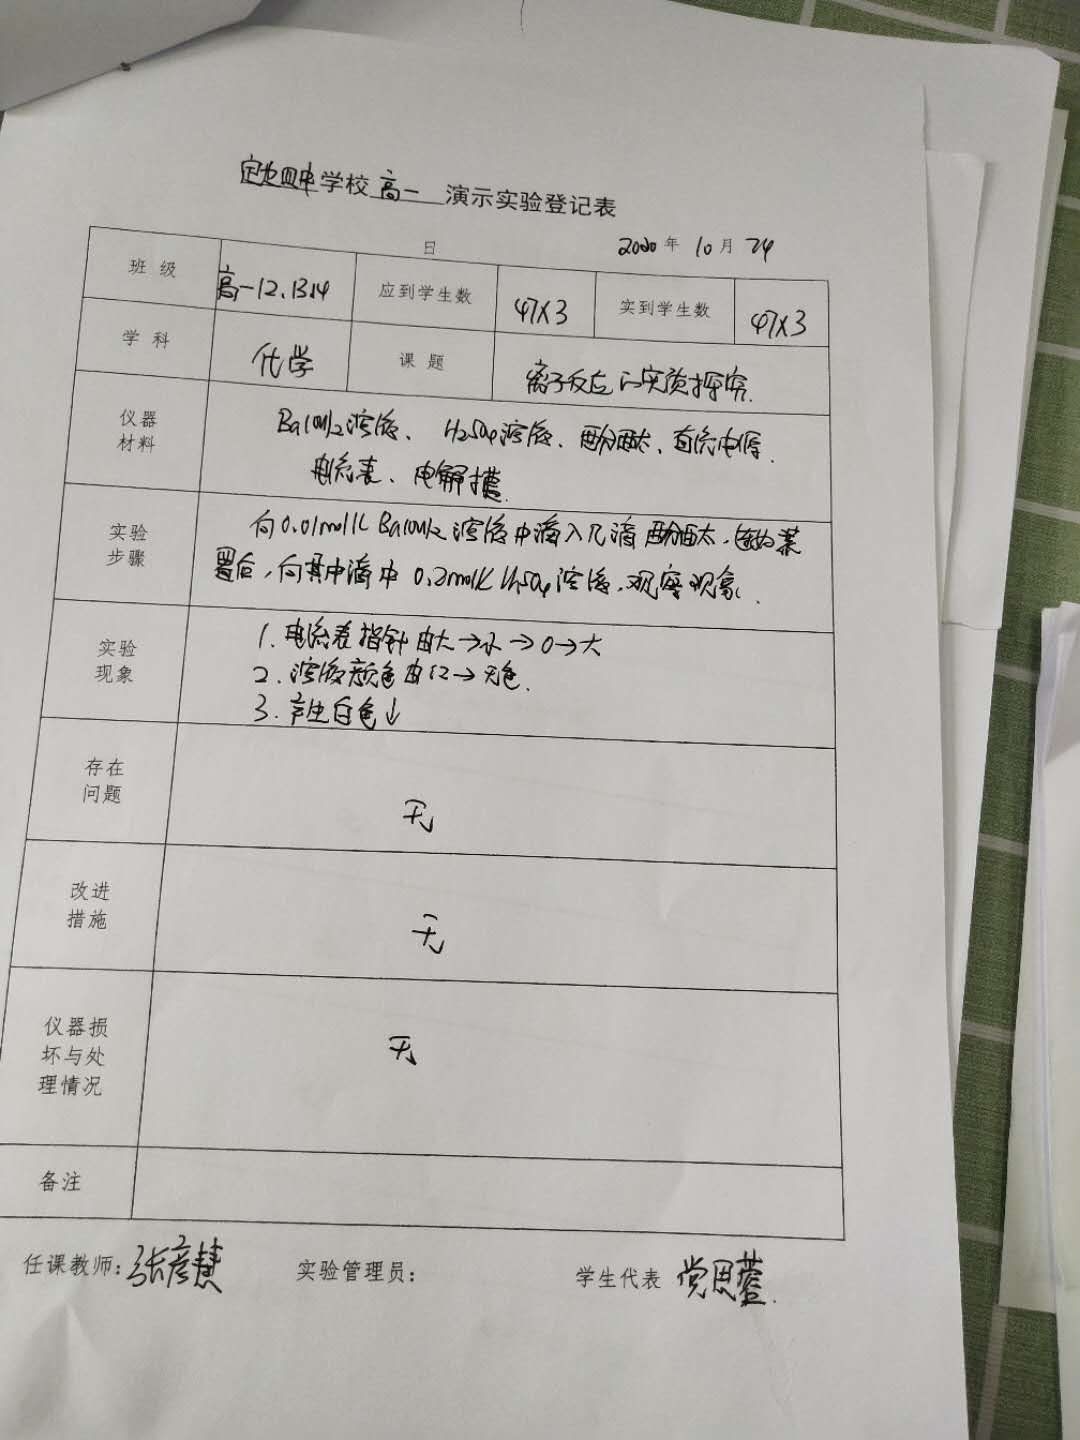 定边四中学校高一 演示实验登记表
日 2020年10月24
班级 高一12、13、14 应到学生数 47×3 实到学生数 47×3
学科 化学 课题 离子反应的实质探究.
仪器材料 Ba(OH)2溶液、H2SO4溶液、酚酞、直流电源.
电流表、电解槽.
实验步骤 向0.01mol/L Ba(OH)2溶液中滴入几滴酚酞,
置后,向其中滴中0.2mol/L H2SO4溶液,观察现象.
实验现象 1.电流表指针由大→小→0→大
2.溶液颜色由红→无色.
3.产生白色↓
存在问题 无
改进措施 无
仪器损坏与处理情况 无
备注
任课教师:张彦慧 实验管理员: 学生代表 党思蓉.